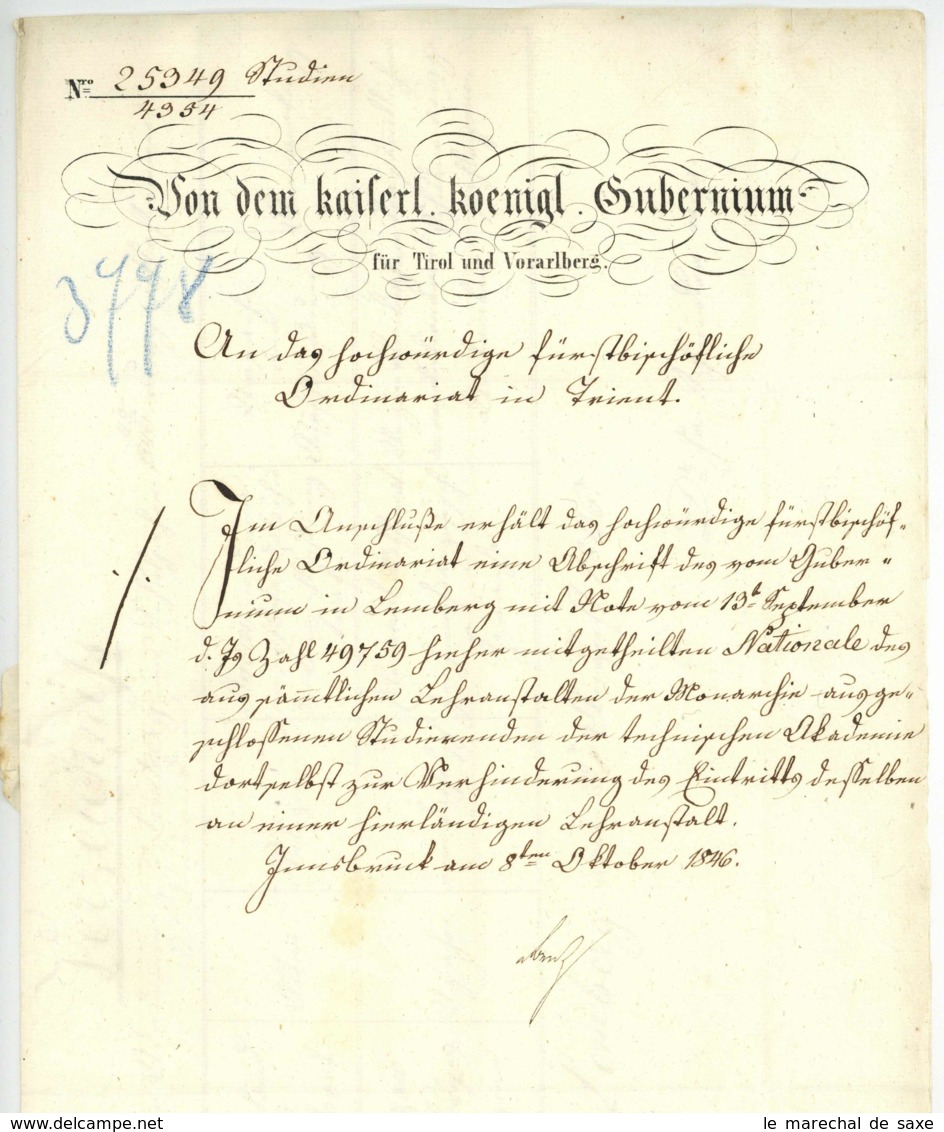 Nro 25349 Studien
4354
Von dem kaiserl. koenigl. Gubernium
für Tirol und Vorarlberg.
3778
An das hochwürdige fürstbischöfliche
Ordinariat in Trient.
./.
Im Anschluße erhält das hochwürdige fürstbischöf-
liche Ordinariat eine Abschrift des vom Guber-
nium in Lemberg mit Note vom 13t September
d. Js Zahl 49759 hieher mitgetheilten Nationale des
aus sämmtlichen Lehranstalten der Monarchie ausge-
schlossenen Studierenden der technischen Akademie
dortselbst zur Verhinderung des Eintritts desselben
an einer hierländigen Lehranstalt.
Innsbruck am 8ten Oktober 1846.
le marechal de saxe